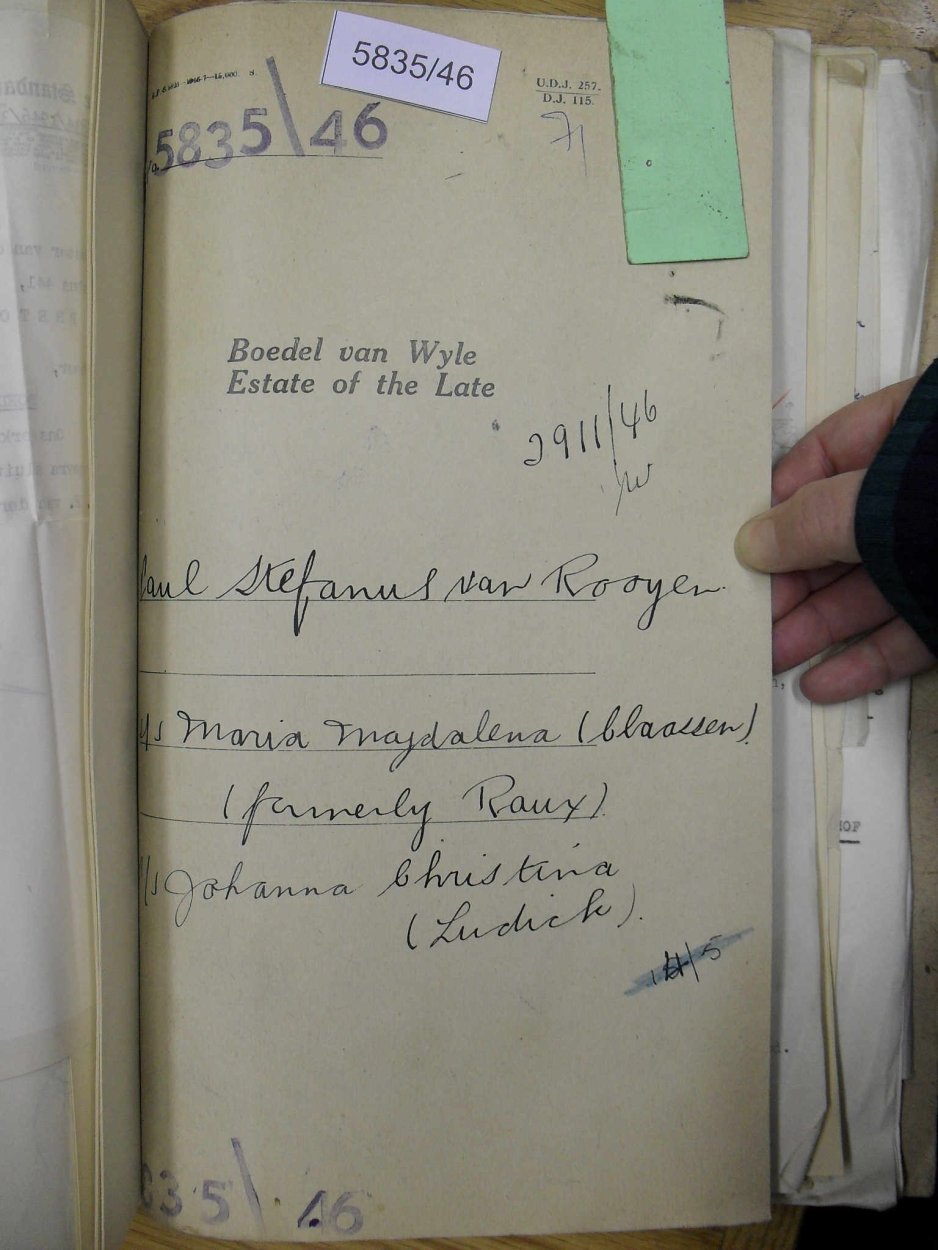 5835/46
U.D.J. 257.
D.J. 115.
5835\46
Boedel van Wyle
Estate of the Late
2911/46
Paul Stefanus van Rooyen.
Maria Magdalena (Claassen).
(formerly Raux).
Johanna Christina
(Ludick).
35\46
HOF